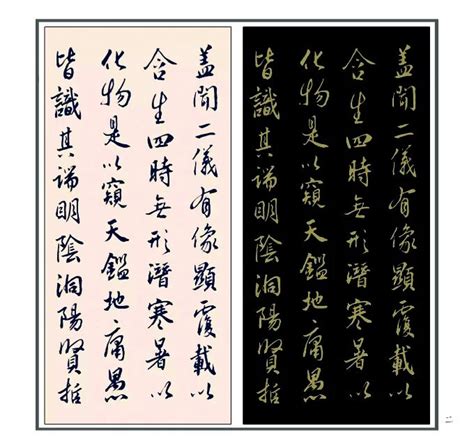 盖聞二儀有像顯覆載以
含生四時無形潛寒暑以
化物是以窺天鑑地庸愚
皆識其端明陰洞陽賢哲
盖聞二儀有像顯覆載以
含生四時無形潛寒暑以
化物是以窺天鑑地庸愚
皆識其端明陰洞陽賢哲
二